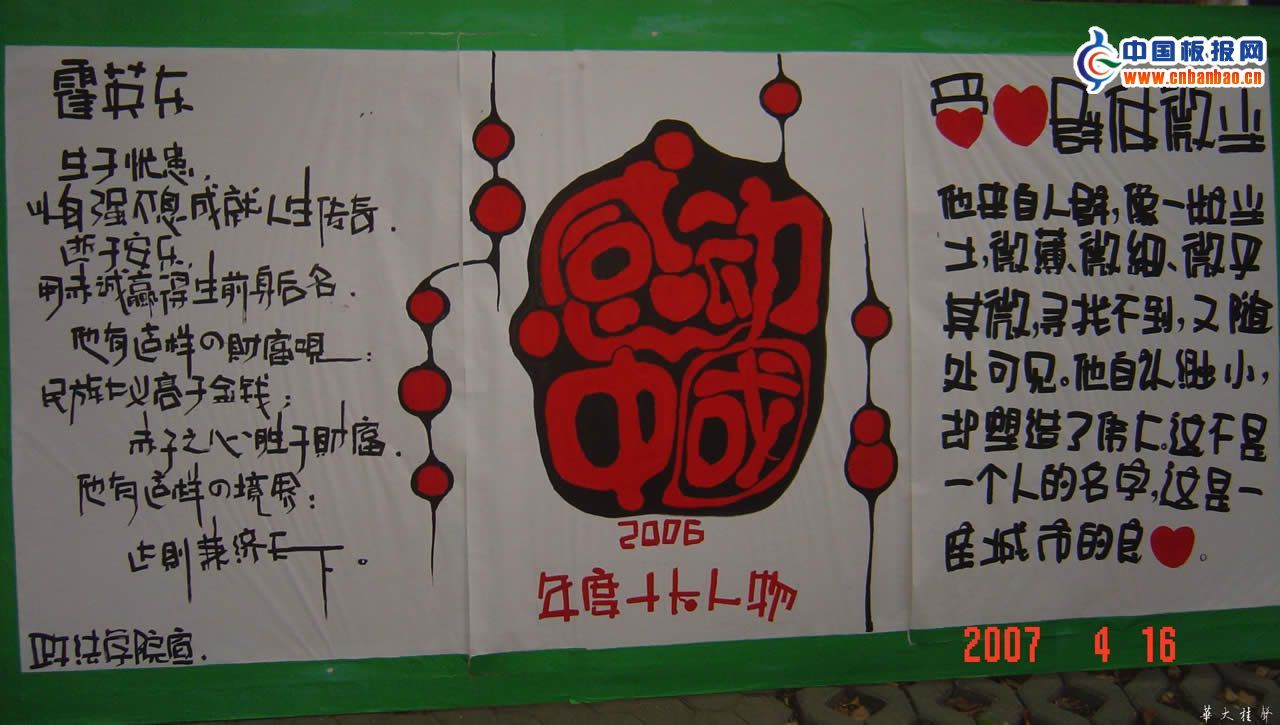 中国板报网
www.cnbanbao.cn
霍英东
生于忧患,
以自强不息成就人生传奇.
逝于安乐.
用赤诚赢得生前身后名.
他有这样の財富观:
民族大义高于金钱;
赤子之心胜于財富.
他有这样の境界:
达則兼济天下。
政法学院宣.
感动
中國
2006
年度十大人物
爱❤群体微尘
他来自人群,像一粒尘
土,微薄、微细、微乎
其微,寻找不到,又随
处可见。他自认渺小,
却塑造了伟大。这不是
一个人的名字,这是一
座城市的良❤。
2007 4 16
華大桂聲